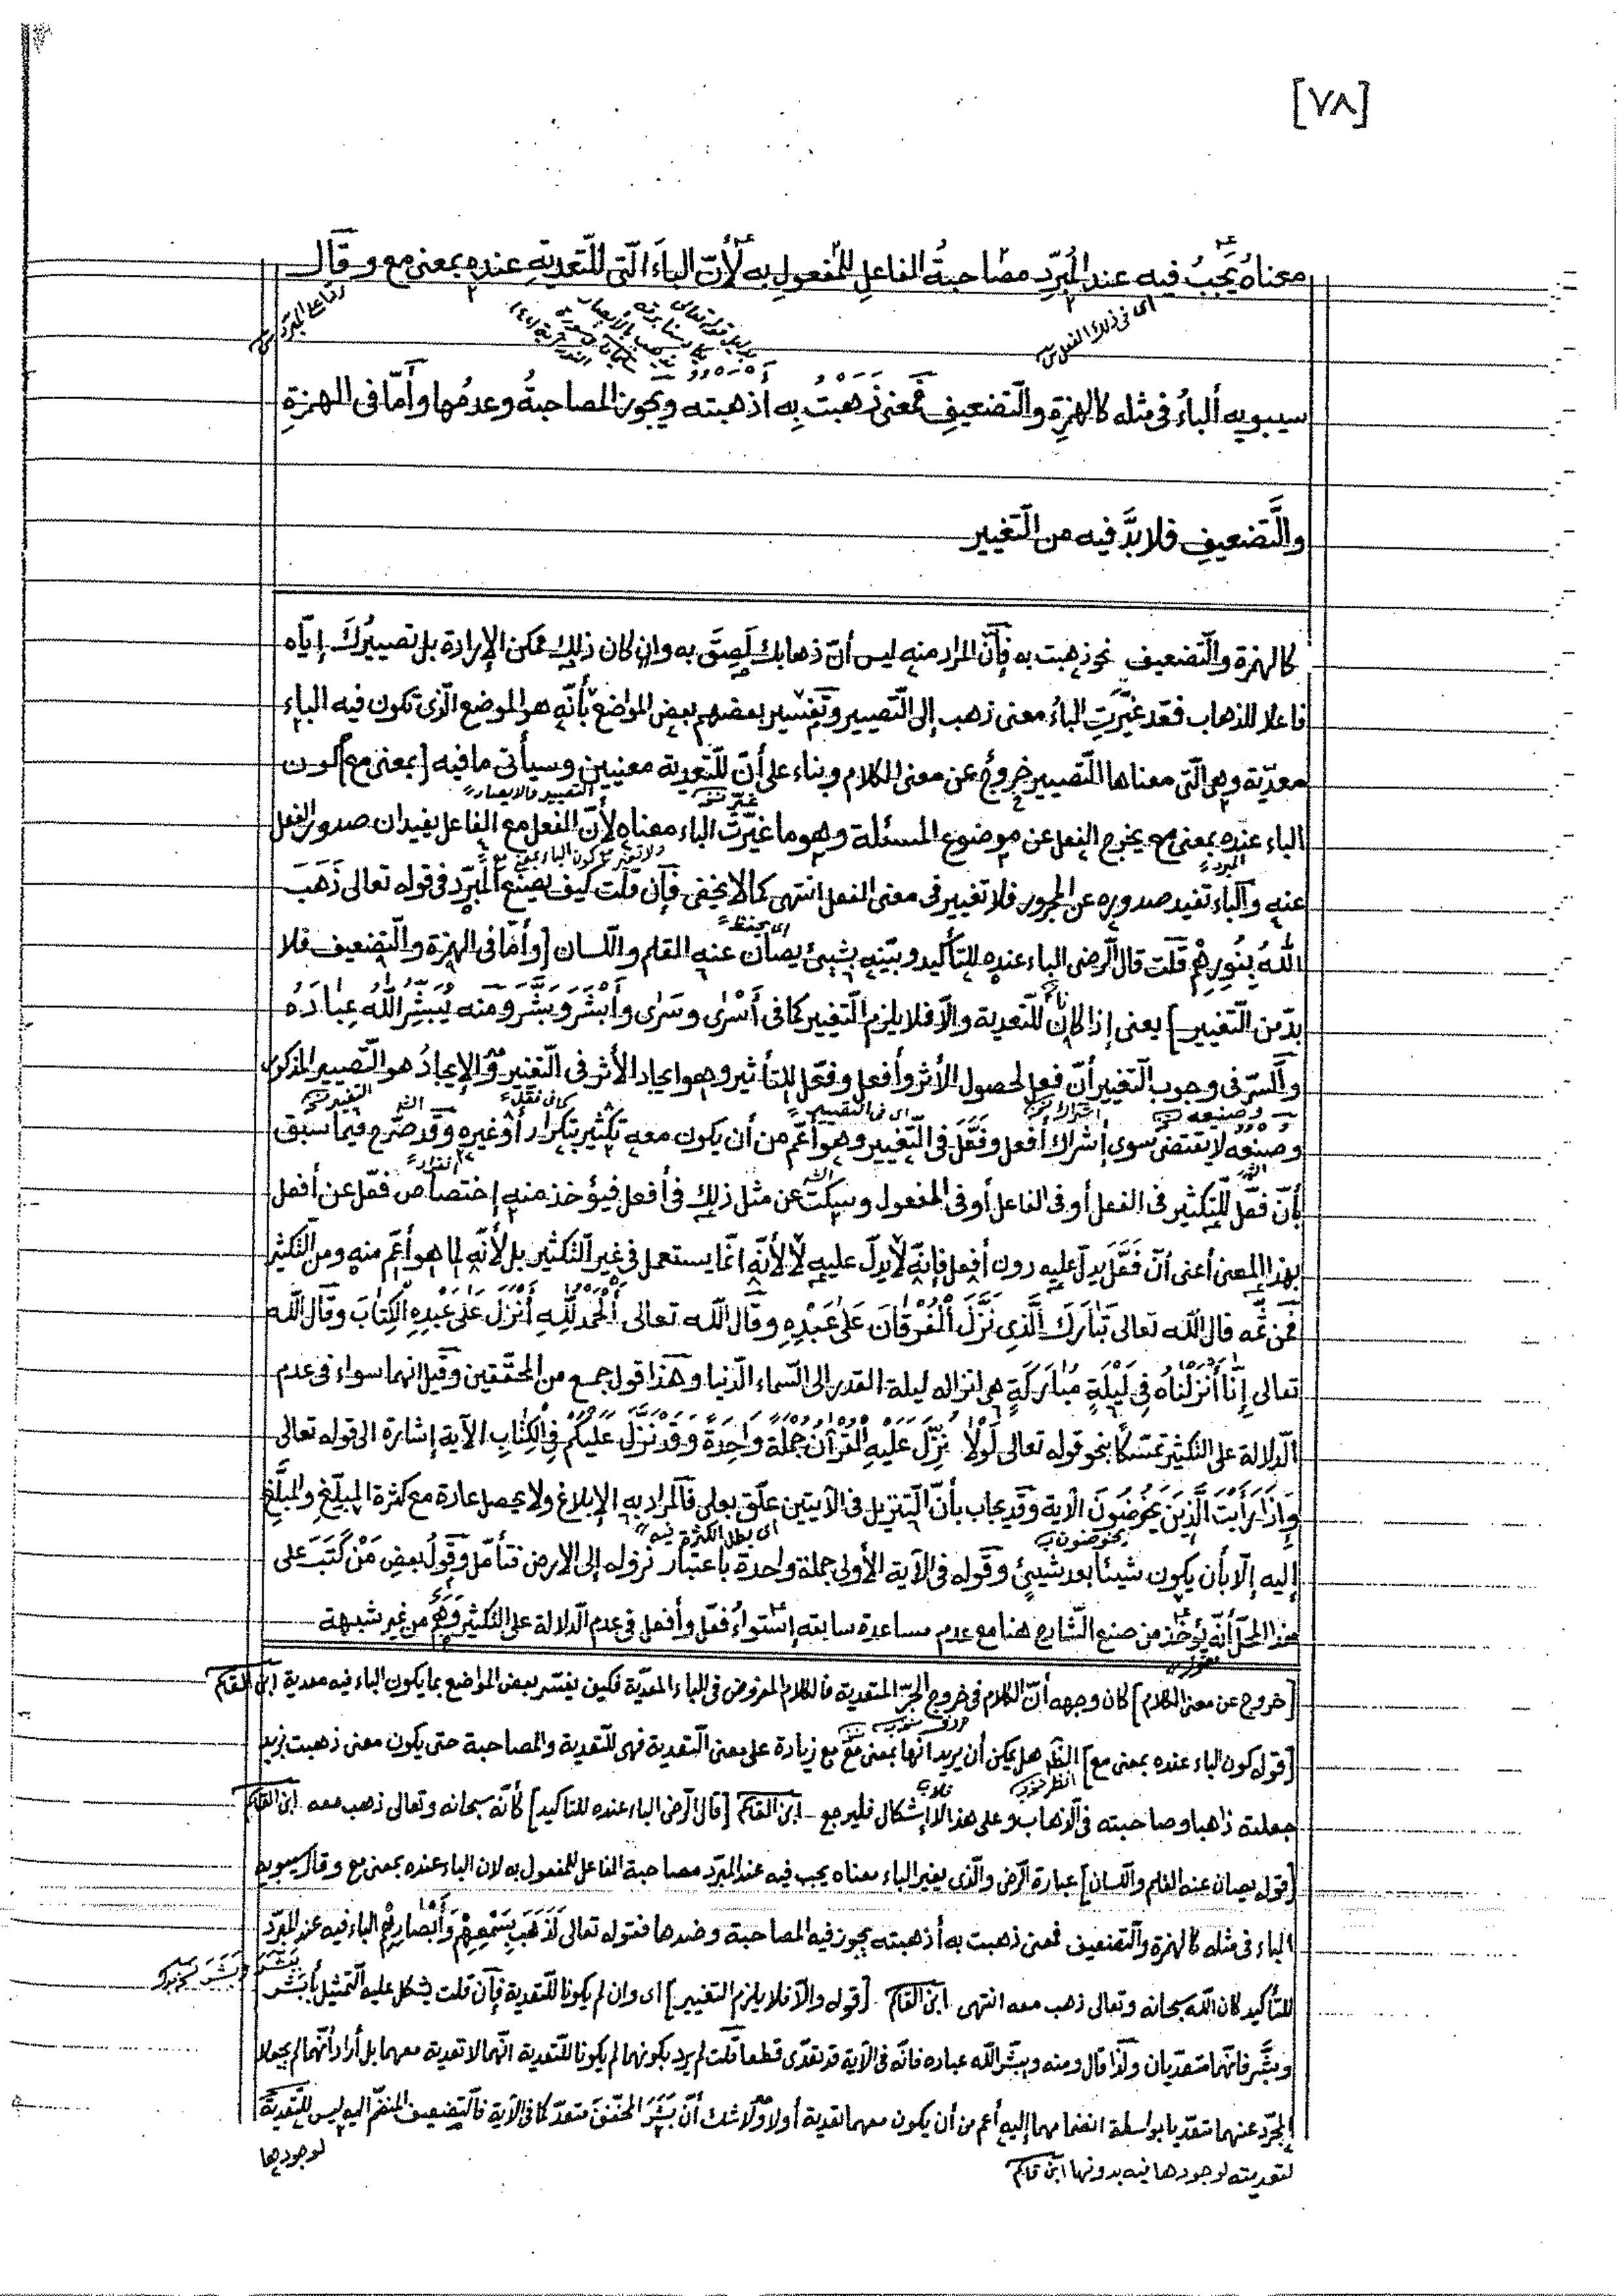 [٧٨]
معناهُ يَجِبُ فيه عند المُبَرِّدِ مصاحبةُ الفاعلِ للمفعولِ به لأنّ الباءَ الّتى للتّعديةِ عنده بمعنى مع وقال
اى فى ذلك الفعل
سيبويه ألباءُ فى مثله كالهمزةِ والتّضعيفِ فمعنى ذَهَبْتُ بِه أَذْهَبْتُه ويجوز المصاحبةُ وعدمُها وأمّا فى الهمزةِ
والتَّضعيفِ فلا بدَّ فيه من التّغيير
كالهمزة والتّضعيف نحو ذهبت به فإنّ المراد منه ليس أنّ ذهابك لَصِقَ به وان كان ذلك ممكن الإرادة بل تصييرُكَ إيّاه
فاعلا للذهاب فقد غيّرتِ الباءُ معنى ذهب إلى التّصيير وتفسير بعضهم بعض المواضع بأنّه هو الموضع الّذى تكون فيه الباء
معدّية وهى الّتى معناها التّصيير خروجٌ عن معنى الكلام وبناء على أنّ للتّعدية معنيين وسيأتى ما فيه [بمعنى مع] كون
التصيير والايصار
الباء عنده بمعنى مع يخرج الفعل عن موضوع المسئلة وهو ما غيّرتْ الباء معناه لأنّ الفعل مع الفاعل يفيدان صدور الفعل
المبرد
عنه والباء تفيد صدوره عن المجرور فلا تغيير فى معنى الفعل انتهى كما لا يخفى فإن قلت كيف يصنع المبرّد فى قوله تعالى ذَهَبَ
اى يحفظ
اللّهُ بِنُورِهِمْ قلت قال الرّضى الباء عنده للتأكيد وبيّنه بشيئ يصان عنه القلم واللّسان [وأمّا فى الهمزة والتّضعيف فلا
بدّ من التّغيير] يعنى إذا كانا للتّعدية والّا فلا يلزم التّغيير كما فى أَسْرٰى وسَرٰى وأَبْشَرَ وَبَشَّرَ ومنه يُبَشِّرُ اللّهُ عِبادَهُ
والسّرّ فى وجوب التّغيير أنّ فعل لحصول الأثر وأفعل وفعّل للتأثير وهو ايجاد الأثر فى التّغيير والإيجادُ هو التّصيير المذكور
وصنعه لا يقتضى سوى إشراك أفعل وفَعَّلَ فى التّغيير وهو أعمّ من أن يكون معه تكثير بتكرار أو غيره وقد صرّح فيما سبق
بأنّ فعّل للتّكثير فى الفعل أو فى الفاعل أو فى المفعول وسكت عن مثل ذلك فى أفعل فيؤخذ منه إختصاص فعّل عن أفعل
بهذا المعنى أعنى أنّ فَعَّلَ يدلّ عليه دون أفعل فإنّه لا يدلّ عليه لا لأنّه انّما يستعمل فى غير التّكثير بل لأنّه لما هو أعمّ منه ومن التّكثير
فمن ثمّه قال اللّه تعالى تَبارَكَ الَّذى نَزَّلَ الْفُرْقانَ عَلى عَبْدِهِ وقال اللّه تعالى أَلْحَمْدُ لِلّهِ أَنْزَلَ عَلى عَبْدِهِ الْكِتابَ وقال اللّه
تعالى إنّا أَنْزَلْناهُ فى لَيْلَةٍ مُبارَكَةٍ هى انزاله ليلة القدر الى السّماء الدّنيا وهذا قول جمع من المحقّقين وقيل انهما سواء فى عدم
الدّلالة على التّكثير تمسّكًا بنحو قوله تعالى لَوْلا نُزِّلَ عَلَيْهِ الْقُرْآنُ جُمْلَةً واحِدَةً وَقَدْ نَزَّلَ عَلَيْكُمْ فى الْكِتابِ الآية إشارة الى قوله تعالى
وَاِذا رَأَيْتَ الَّذينَ يَخُوضُونَ الآية وقد يجاب بأنّ التّنزيل فى الآيتين علّق بعلى فالمراد به الإبلاغ ولا يحصل عادة مع كثرة المبلّغِ والمبلَّغِ
إليه إلّا بأن يكون شيئا بعد شيئ وقوله فى الآية الأولى جملة واحدة باعتبار نزوله إلى الارض فتأمّل وقولُ بعضِ مَنْ كَتَبَ على
هذا المحلّ أنّه يؤخذ من صنع الشّارح هنا مع عدم مساعدة سابقه إستواءُ فعّل وأفعل فى عدم الدّلالة على التّكثير وَهْمٌ من غير شبهة
[خروج عن معنى الكلام] كان وجهه أنّ الكلام فى خروج الجرّ المتعدية فالكلام المفروض فى الباء المعدّية فكيف يفسّر بعض المواضع بما يكون الباء فيه معدية ابن القاسم
[قوله كون الباء عنده بمعنى مع] انظر هل يمكن أن يريد انّها بمعنى مع مع زيادة على معنى التّعدية فهى للتّعدية والمصاحبة حتى يكون معنى ذهبت بزيد
جعلته ذاهبا وصاحبته فى الذهاب وعلى هذا لا إشكال فليرجع ابن القاسم [قال الرّضى الباء عنده للتاكيد] كأنّه سبحانه وتعالى ذهب معه ابن القاسم
[قوله يصان عنه القلم واللّسان] عبارة الرّضى والّذى يغيّر الباء معناه يجب فيه عند المبرّد مصاحبة الفاعل للمفعول به لان الباء عنده بمعنى مع وقال سيبويه
الباء فى مثله كالهمزة والتّضعيف فمعنى ذهبت به أذهبته يجوز فيه المصاحبة وضدها فقوله تعالى لَذَهَبَ بِسَمْعِهِمْ وَأَبْصارِهِمْ الباء فيه عند المبرّد
للتّأكيد كان اللّه سبحانه وتعالى ذهب معه انتهى ابن القاسم [قوله والّا فلا يلزم التغيير] اى وان لم يكونا للتّعدية فإن قلت يشكل عليه التّمثيل بأبشر
وبشّر فانّهما متعدّيان ولذا قال ومنه ويبشّر اللّه عباده فانّه فى الآية قد تعدّى قطعا قلت لم يرد بكونهما لم يكونا للتّعدية انّهما لا تعدية معهما بل أراد أنّهما لم يجعلا
المجرّد عنهما متعدّيا بواسطة انضمامهما إليه أعم من أن يكون معهما تعدية أو لا ولا شك أنّ بَشَرَ المخفّف متعدّ كما فى الآية فالتّضعيف المنضمّ اليه ليس للتّعدية
لوجودها
لتعديته لوجودها فيه بدونها ابن قاسم